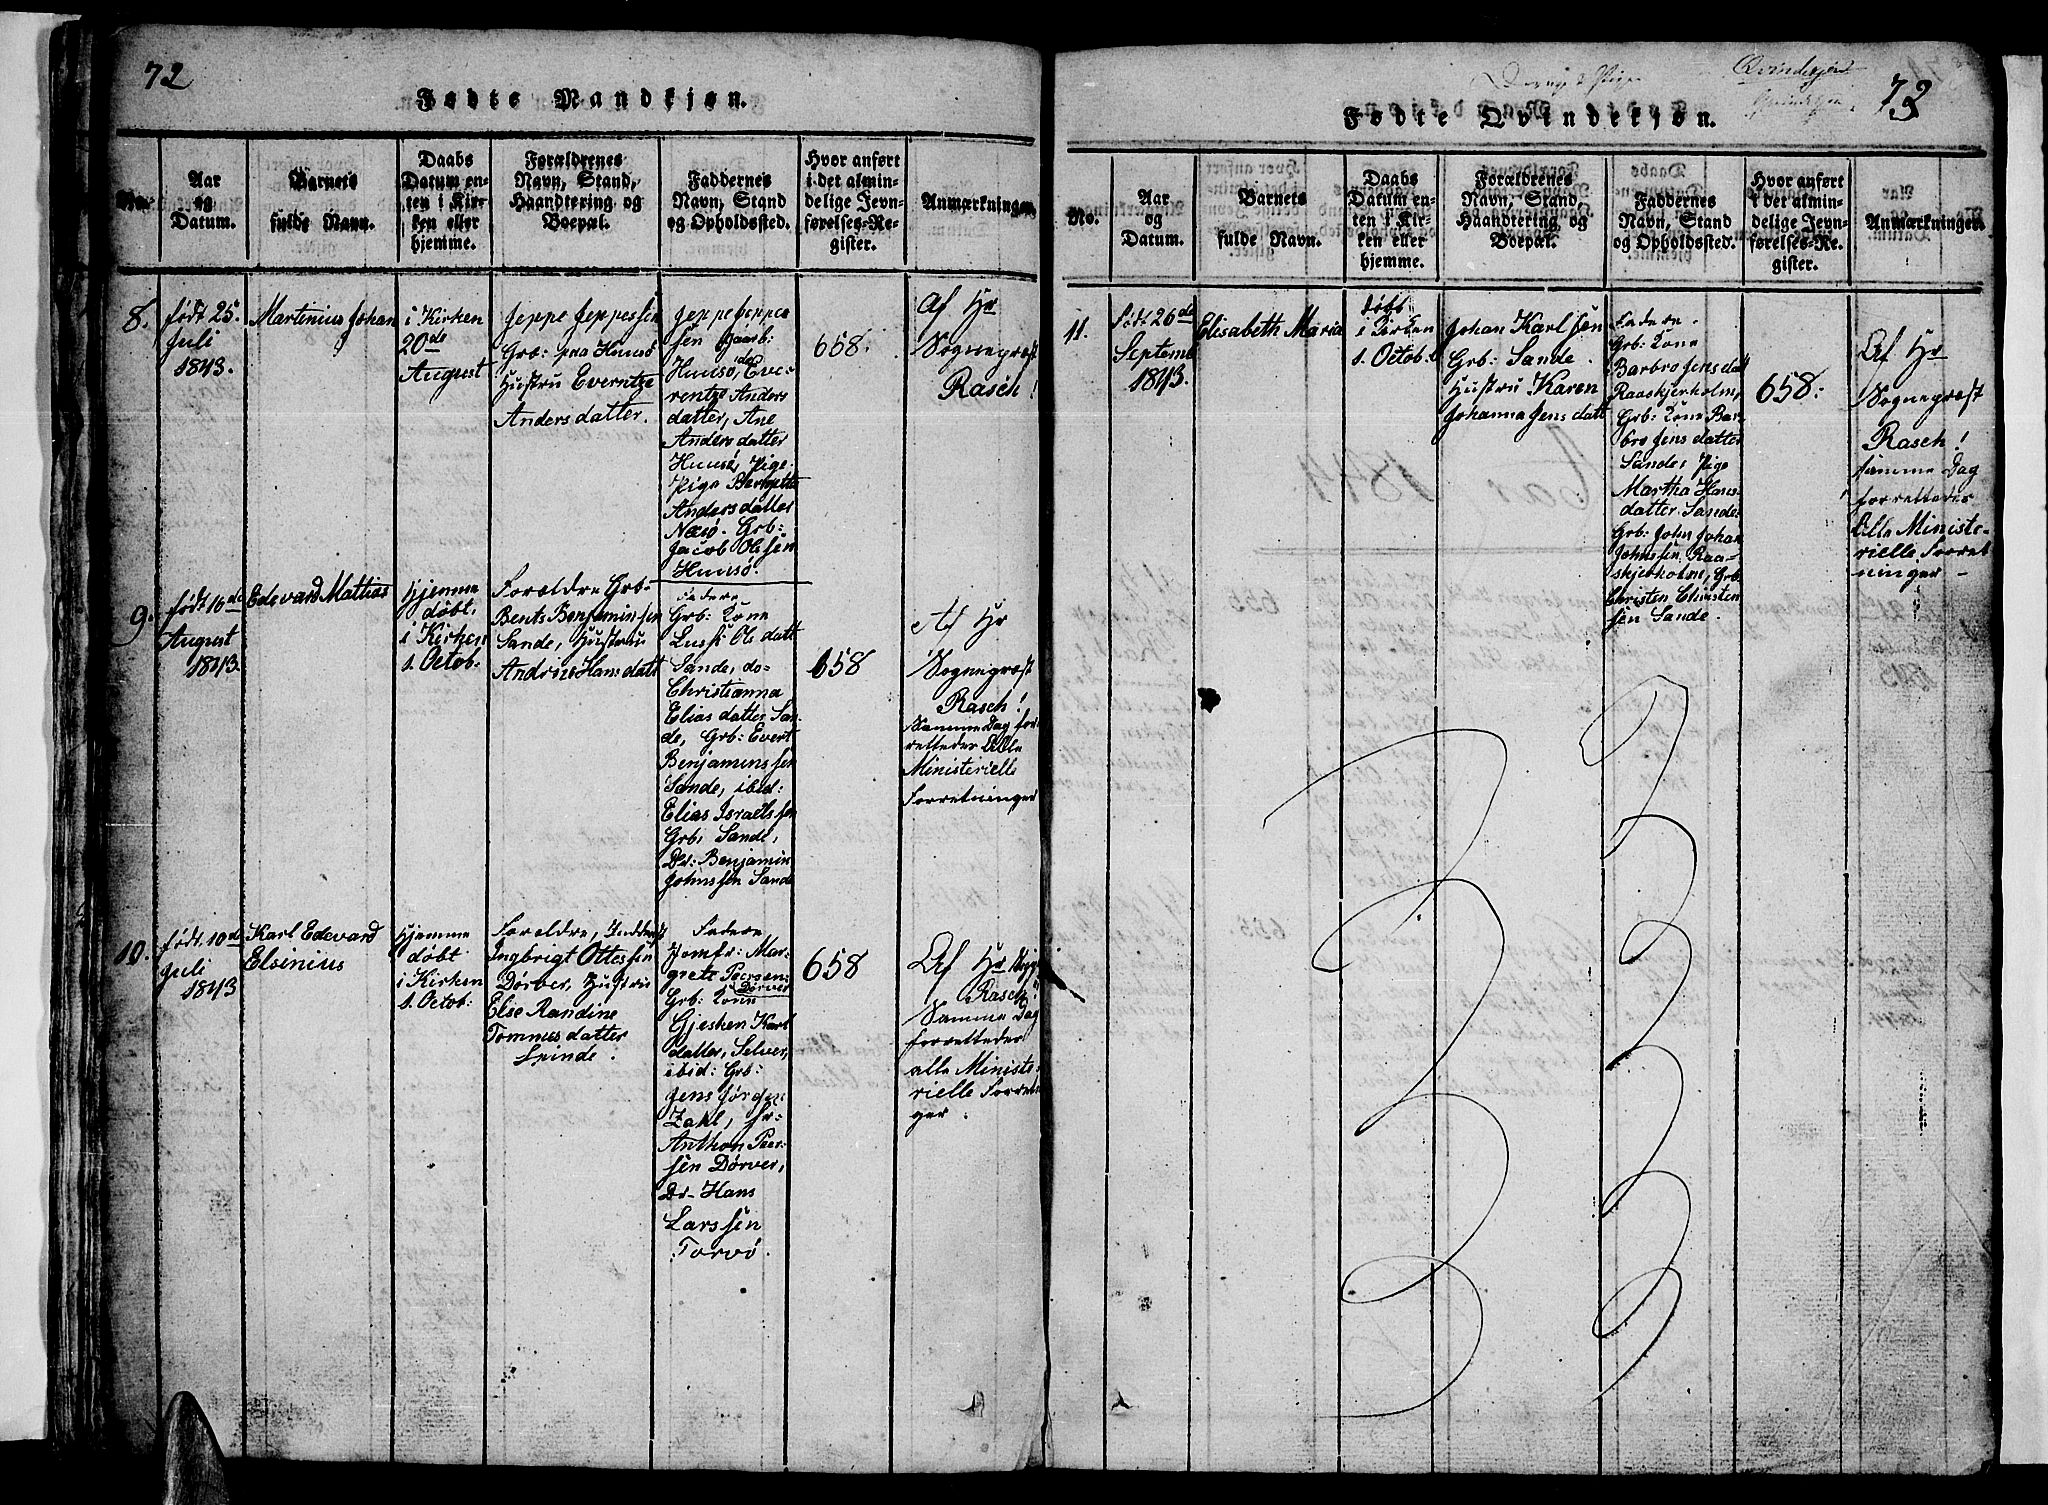 72
Fødte Mandkjøn.
No.
Aar
og
Datum.
Barnets
fulde Navn.
Daabs
Datum en-
ten i Kir-
ken eller
hjemme.
Forældrenes
Navn, Stand,
Haandtering og
Boepæl.
Faddernes
Navn, Stand
og Opholdssted.
Hvor anført
i det almin-
delige Jevn-
førelses-Re-
gister.
Anmærkninger.
8.
født 25.
Juli
1843.
Martinius Johan
i Kirken
20de
August
Jeppe Jeppessen
Grb: paa Huusø
Hustru Everntze
Anders datter.
Jeppe Jeppes
sen Gaarb:
Huusø, Eve-
rentze Anders
datter, Ane
Anders datter
Huusø, Pige
Pige Bergette
Anders datter
Næsø. Grb:
Jacob Olssen
Huusø.
658.
Af Hr
Sognepræst
Rasch!
9.
født 16de
August
1843.
Edevard Mattias
Hjemme
døbt,
i Kirken
1. Octob:
Foreldre Grb-
Bents Benjaminsen
Sande, Hustrue
Andrine Hans datt
Fadere
Grb: Kone
Lussi Ols datt
Sande, do-
Christianna
Elias datter San
de, Grb: Evert
Benjaminssen
Sande, ibid:
Elias Israelssen
Grb, Sande,
Dr: Benjamin
Johnssen Sande
658
Af Hr
Sognepræst
Rasch!
Samme Dag for-
retteder Alle
Ministerielle
Forretninger
10.
født 10de
Juli
1843
Karl Edevard
Elsenius
Hjemme
døbt
i Kirken
1. Octob:
Foreldre,
Ingbrigt Ottessen
Dørver, Hustrue
Else Randine
Tommes datter
Fadere
Jomfr: Mar-
grete Peersen
Dørver
Grb: Kone
Gjesken Karl
datter, Selver,
ibid: Grb:
Jens Jørgen
Zahl,
Anthon Peer-
sen Dørver,
Dr- Hans
Larssen
Torvø.
658
Af Hr
Rasch!
Samme Dag
forretteder
alle Ministe-
rielle Forretnin
ger.
Qvindekjøn
73
Fødte Qvindekjøn.
No.
Aar
og
Datum.
Barnets
fulde Navn.
Daabs
Datum en-
ten i Kir-
ken eller
hjemme.
Forældrenes
Navn, Stand,
Haandtering og
Boepæl.
Faddernes
Navn, Stand
og Opholdssted.
Hvor anført
i det almin-
delige Jevn-
førelses-Re-
gister.
Anmærkninger.
11.
født 26de
Septemb
1843.
Elisabeth Maria
døbt
i Kirken
1. Octob.
Johan Karlsen
Grb: Sande.
Hustru Karen
Johanna Jens datt
Fadere-
Grb: Kone
Barbro Jens datt
Raaskjerholm,
Grb: Kone Bar-
bro Jens datter
Sande, Pige
Martha Hans-
datter Sande-
Grb: John Johan
Johnssen Raa-
skjerholm, Grb
Christen Christen
sen Sande.
658:
Af Hr
Sognepræst
Rasch!
samme Dag
forretteder
Alle Ministe-
rielle Forret
ninger -